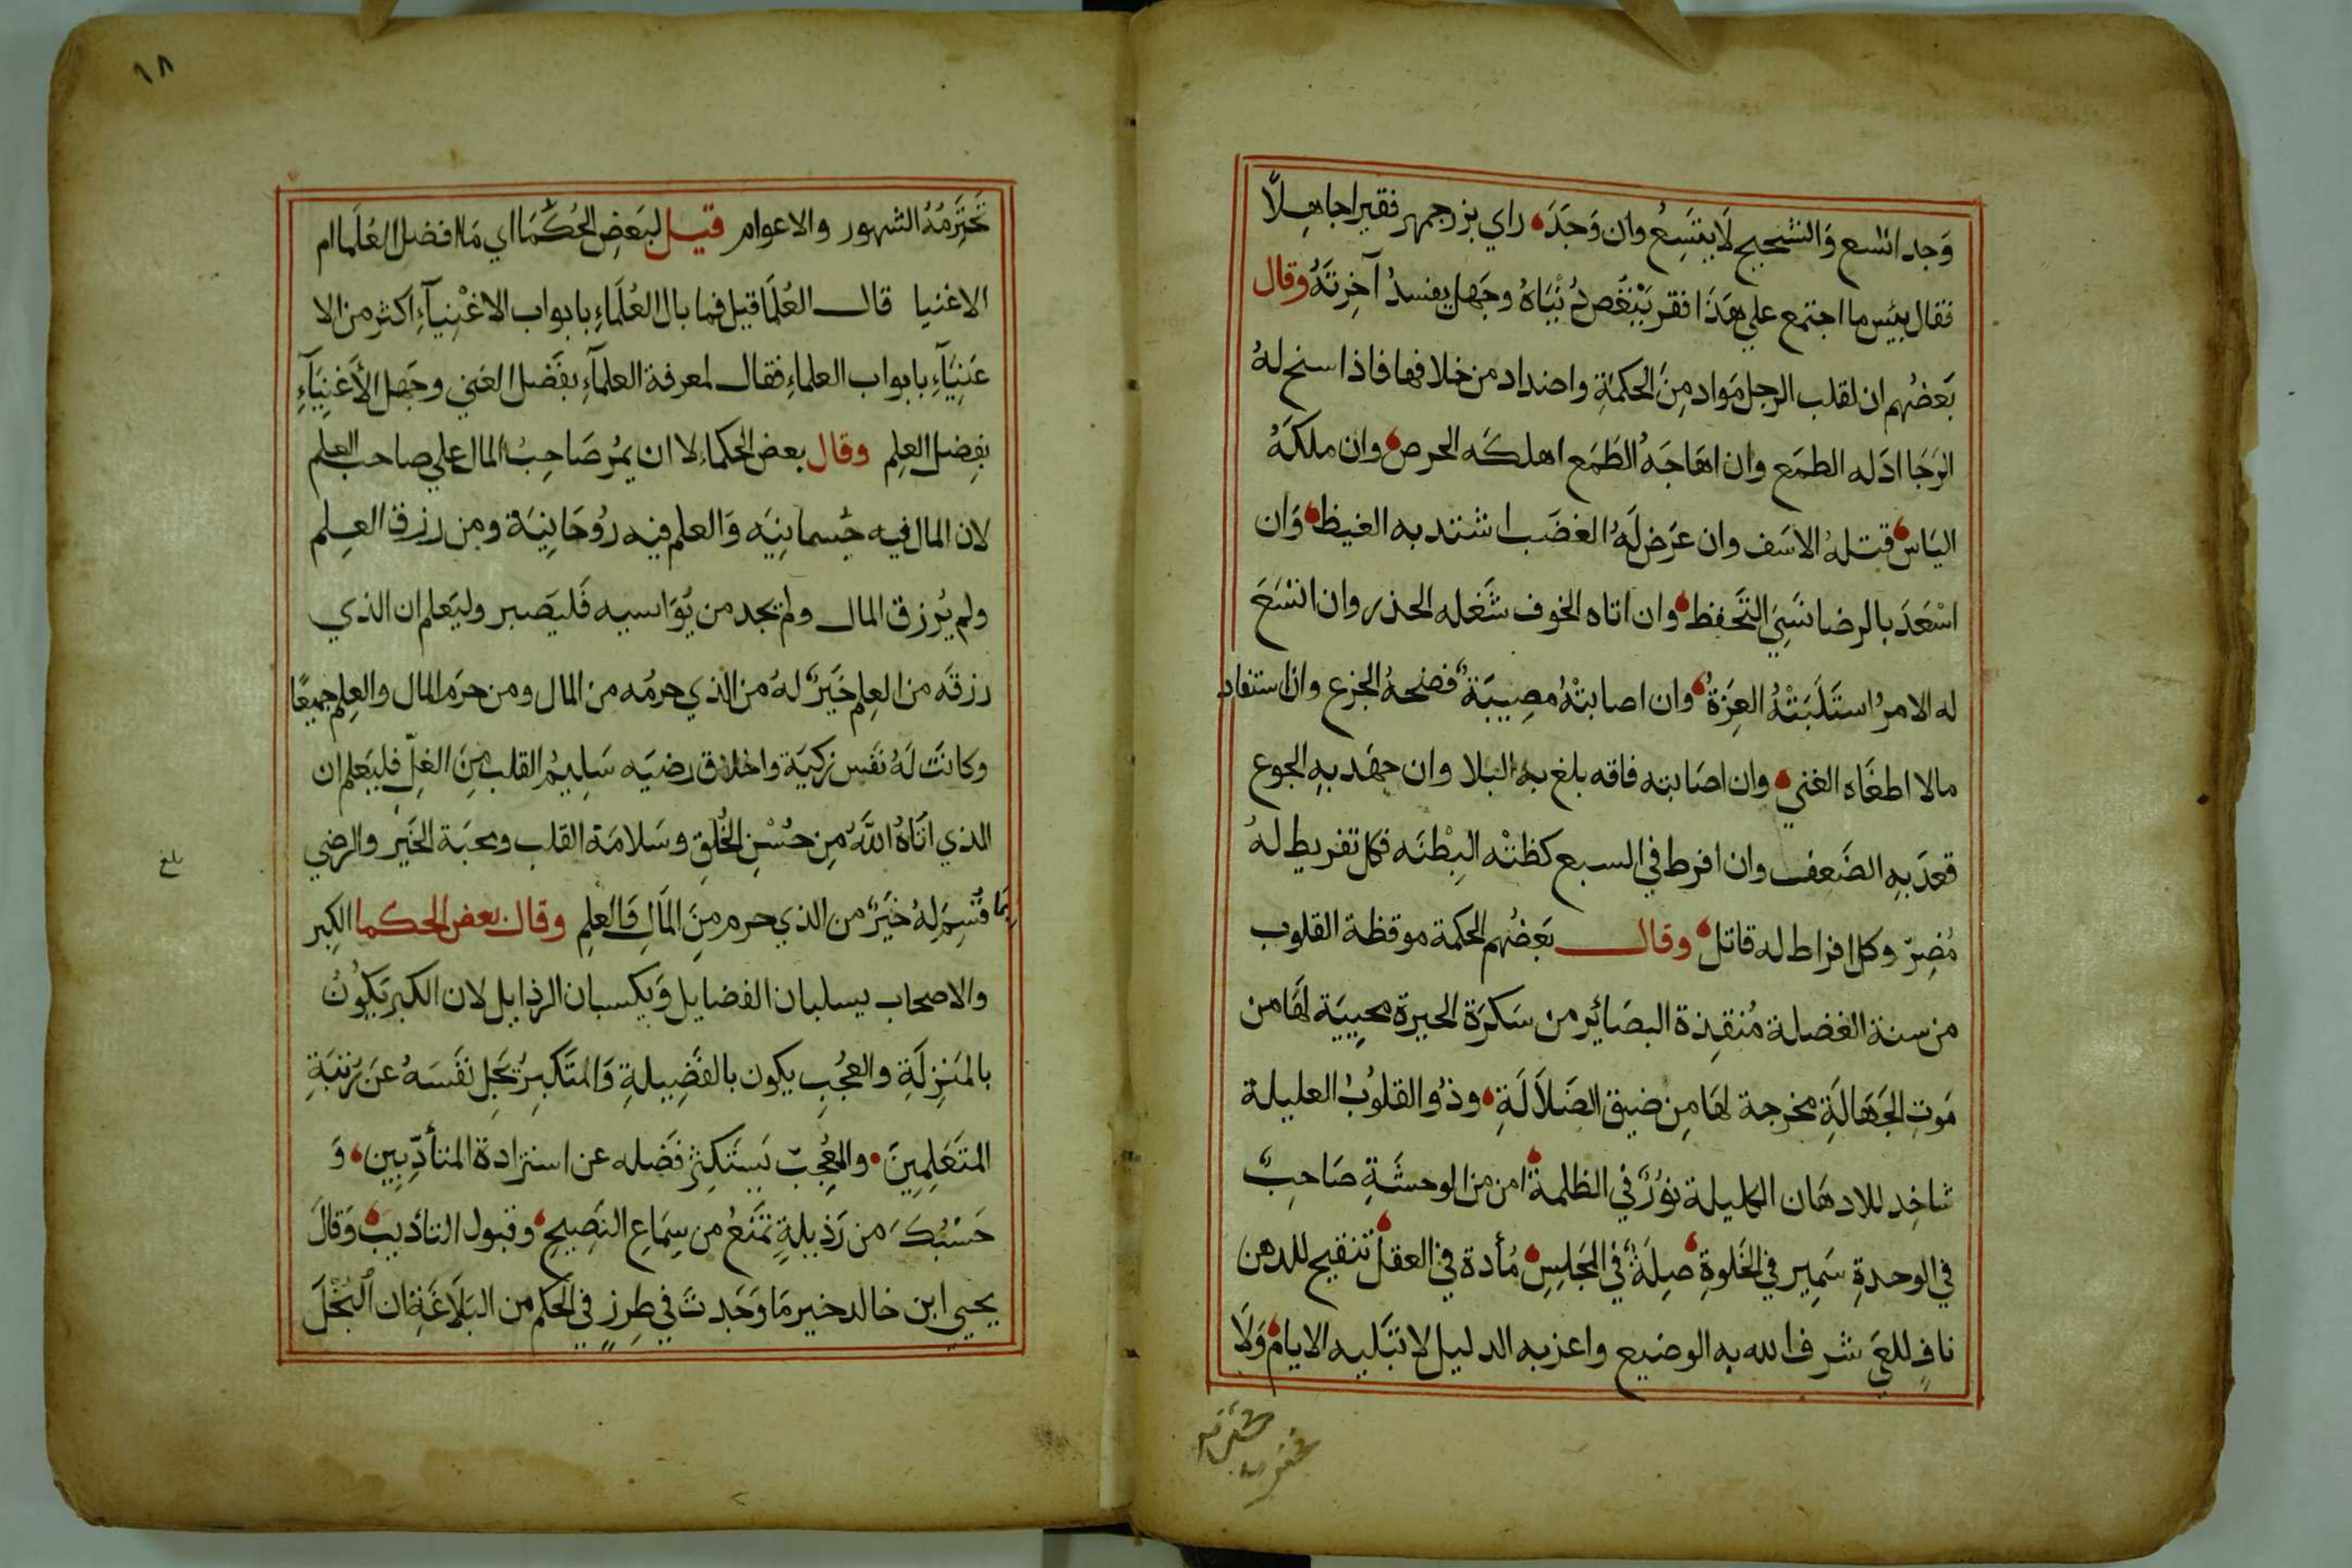 وَجد اتسع وَالشحيح لَا يتسِعُ وان وَجَدَ راي بزرجمهر فقيرا جاهِلًا
فقال بيئس ما اجتمع علي هَذَا فقر يَنْغُص دُنْيَاهُ وجَهل يفسدُ آخِرتَهُ وقال
بَعضُهم ان لقلب الرجل مَواد مِنَ الحكمةِ واضداد من خلافها فاذا سنح لهُ
الرَجَا اذَله الطمَع وان اهَاجَهُ الطَمَع اهلكَه الحرص وان ملكَهُ
اليَاس قتلهُ الاسَف وان عَرَض لَهُ الغضَب اشتد به الغيظ وَان
اسْعَدَ بالرضا نَسِيَ التَحَفظ وان اتاه الخوف شَغله الحذر وان اتسَعَ
له الامرُ استَلَبَتْهُ العِزَةُ وان اصابتهُ مصِيبَةٌ فضحهُ الجزع وان استفاد
مالا اطغَاه الغني وان اصَابته فاقه بلغ بهِ البلا وان جهَد بهِ الجوع
قعدَ بهِ الضَعف وان افرط في السبع كظتْه البِطْنَه فكل تفريط لهُ
مُضِرّ وكل افراط له قاتل وقال بَعضُهم الحكمة موقظة القلوب
من سنة الغضلة مُنقِذة البصَائر من سَكرَة الحيرة محييَة لهَا من
مَوتِ الجَهَالَةِ مخرجة لهَا مِن ضيق الضَلَالَةِ وذُو القلوُب العليلة
شاخِد للادهَان الكليلة نوُرٌ في الظلمة امن من الوحشَةِ صَاحِبٌ
في الوحدةِ سَمِير في الخَلوةِ صِلَةٌ في المَجَلِسِ مُأدة في العقل تنقيح للدهن
نافٍ للعَي شرف الله به الوضيع واعز به الدليل لا تبَليه الايام وَلَا
١٨
تَختَرِمُهُ الشهور والاعوام قيل لبَعضِ الحُكَمَا اي مَا افضل العُلَما ام
الاغنيا قال العُلَمَا قيل فما بال العُلَمَاءِ بابواب الاغْنِيآءِ اكثر من الا
غَنِيَآءِ بابواب العلماءِ فقال لمعرفة العلمآءِ بفَضل الغني وجَهل الأغنِيَآءِ
بفِضل العِلم وقال بعض الحكماء لا ان يمُر صَاحِبُ المال علي صاحب العلم
لان المال فيه جُسمانِيَه وَالعلم فيه رُوحَانِيَة ومن رزق العِلم
ولم يُرزق المال ولم يجد من يُوَاسيه فَليَصبر وليَعلم ان الذي
رزقَه من العِلم خَيَرٌ لهُ من الذي حرمُه من المال ومن حرَم المال والعِلم جميعًا
وكانَت لَهُ نفَس زكيَة واخلاق رضيَه سَلِيمُ القلب مِنَ الغِلّ فليَعلم ان
الذي اتَاهُ اللَّهُ مِن حُسْنِ الخُلقِ وسَلامَة القلب ومحبَة الخَيَر والرضي
بمَا قُسِمَ لِهُ خَيَرٌ من الذي حرم منَ المَالِ وَالعلِم وقال بعض الحكما الكِبر
والاصحاب يسلبان الفضايل وَيكسبان الرذايل لان الكبر يَكوُنُ
بالمَنِزلَةِ والعجُبِ يكون بالفَضِيلةِ وَالمتَكبِرُ يُجَل نفَسَهُ عَن رُتبَةِ
المتَعَلِمِينَ والمعُجِبّ يَستَكثِر فَضله عن استزادة المتأدّبِين وَ
حَسْبُكَ من رَذِيلةٍ تمنَعُ من سِمَاع النَصِيح وقبول التاديب وَقالَ
يحيي ابن خالد خير مَا وَجَدتَ في طِرزٍ في الحكم من البَلَاغَةِ ان البُخْلَ
بلغ